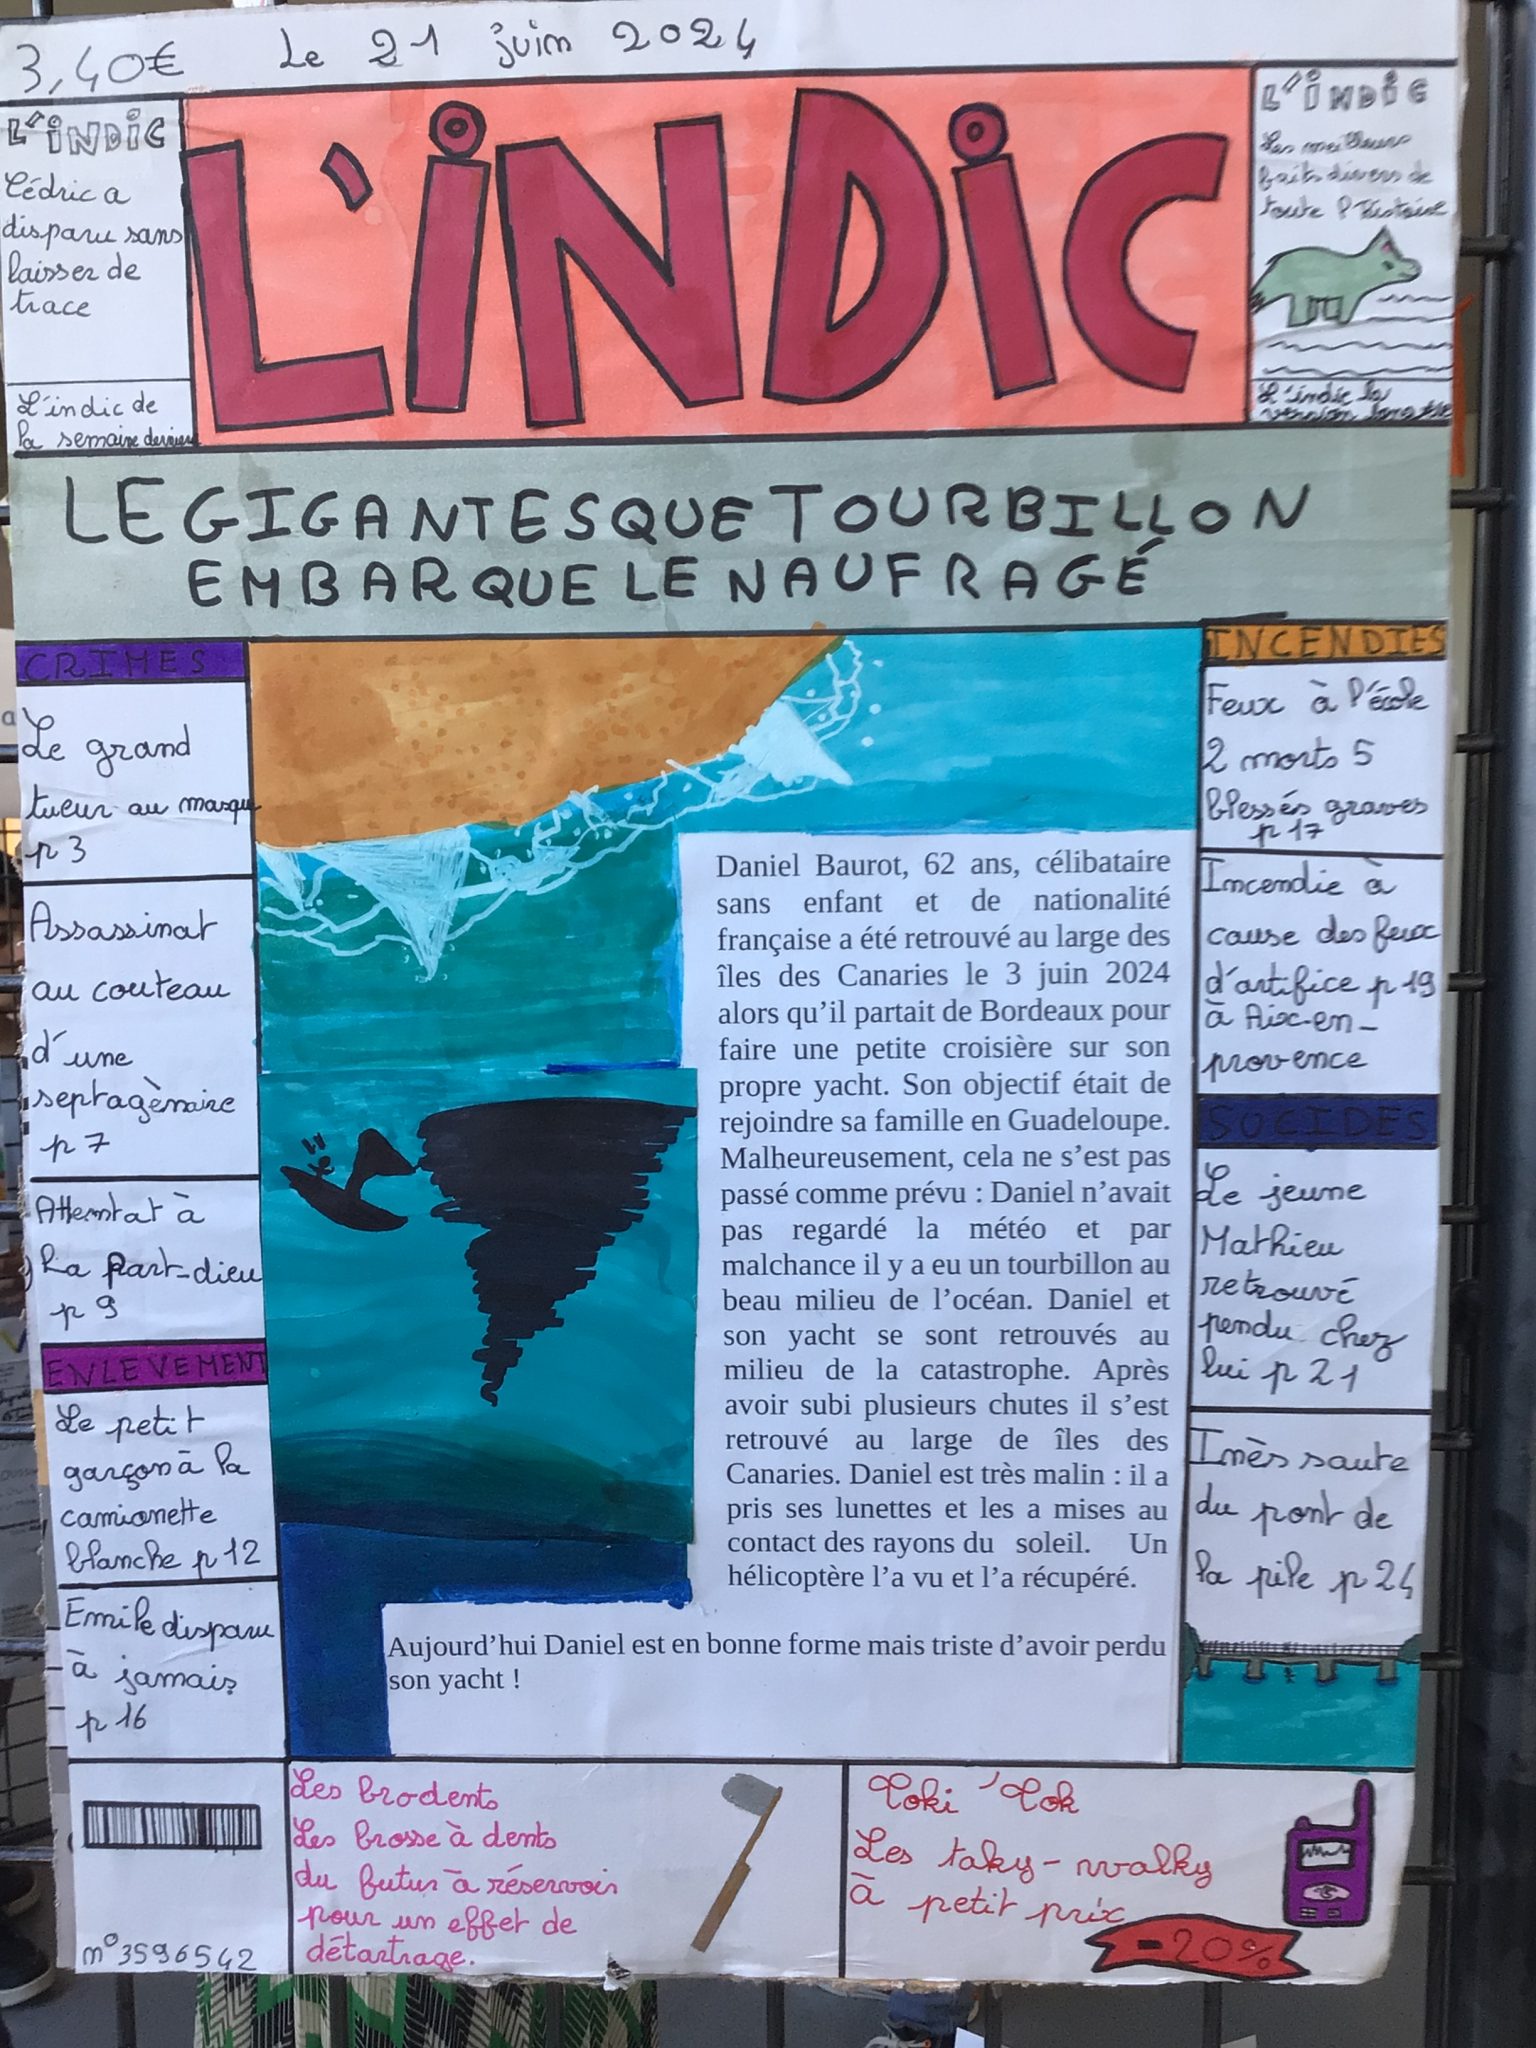 3,40€ Le 21 juin 2024
L'iNDiC
Cédric a
disparu sans
laisser de
trace
L'indic de
la semaine dernière
L'iNDiC
L'iNDiC
Les meilleurs
faits divers de
toute l'Histoire
L'indic la
version
LE GIGANTESQUE TOURBILLON
EMBARQUE LE NAUFRAGÉ
CRIMES
Le grand
tueur au masque
p 3
Assassinat
au couteau
d'une
septagènaire
p 7
Attentat à
La part-dieu
p 9
ENLEVEMENT
Le petit
garçon à la
camionette
blanche p 12
Emile disparu
à jamais
p 16
Daniel Baurot, 62 ans, célibataire
sans enfant et de nationalité
française a été retrouvé au large des
îles des Canaries le 3 juin 2024
alors qu'il partait de Bordeaux pour
faire une petite croisière sur son
propre yacht. Son objectif était de
rejoindre sa famille en Guadeloupe.
Malheureusement, cela ne s'est pas
passé comme prévu : Daniel n'avait
pas regardé la météo et par
malchance il y a eu un tourbillon au
beau milieu de l'océan. Daniel et
son yacht se sont retrouvés au
milieu de la catastrophe. Après
avoir subi plusieurs chutes il s'est
retrouvé au large de îles des
Canaries. Daniel est très malin : il a
pris ses lunettes et les a mises au
contact des rayons du soleil. Un
hélicoptère l'a vu et l'a récupéré.
Aujourd'hui Daniel est en bonne forme mais triste d'avoir perdu
son yacht !
INCENDIES
Feux à l'école
2 morts 5
blessés graves
p 17
Incendie à
cause des feux
d'artifice p 19
à Aix-en-
provence
SUCIDES
Le jeune
Mathieu
retrouvé
pendu chez
lui p 21
Inès saute
du pont de
la pile p 24
n°3596542
Les brodents
Les brosse à dents
du futur à réservoir
pour un effet de
détartrage.
Toki'Tok
Les taky-walky
à petit prix
-20%